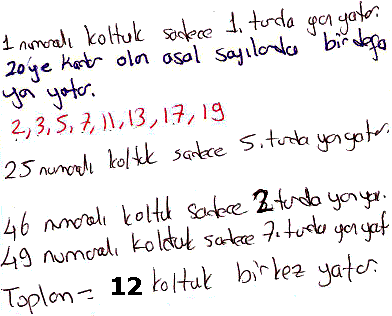 1 numaralı koltuk sadece 1. turda yan yatar.
20'ye kadar olan asal sayılarda bir defa
yan yatar.
2, 3, 5, 7, 11, 13, 17, 19
25 numaralı koltuk sadece 5. turda yan yatar.
46 numaralı koltuk sadece 2 turda yan yar.
49 numaralı koltuk sadece 7. turda yan yat
Toplam = 12 koltuk bir kez yatar.